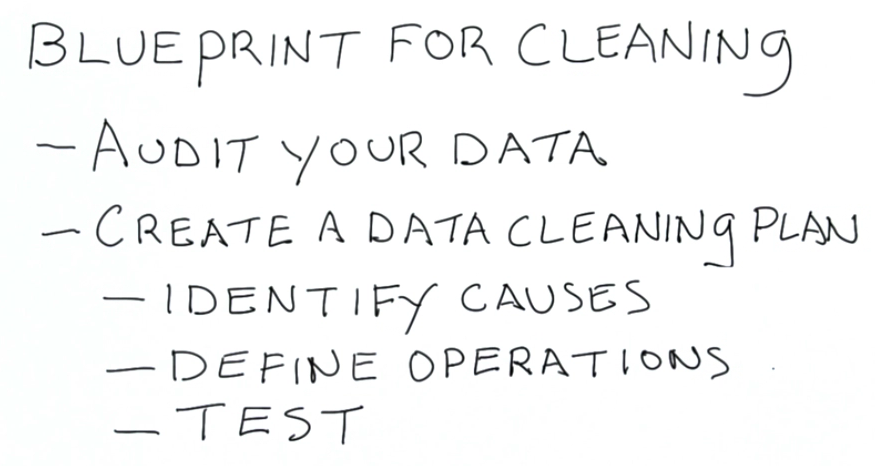 BLUEPRINT FOR CLEANING
- AUDIT YOUR DATA
- CREATE A DATA CLEANING PLAN
- IDENTIFY CAUSES
- DEFINE OPERATIONS
- TEST